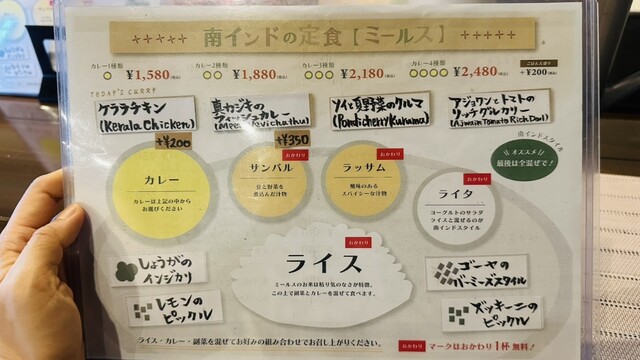 南インドの定食【ミールス】
カレー1種類 ¥1,580(税込)
カレー2種類 ¥1,880(税込)
カレー3種類 ¥2,180(税込)
カレー4種類 ¥2,480(税込)
ごはん大盛り +¥200(税込)
TODAY'S CURRY
ケララチキン
(Kerala Chicken)
+¥200
真カジキの
フィッシュカレー
(Meen Pevichathu)
+¥350
ソイと夏野菜のクルマ
(Pondicherry Kurama)
アジョワンとトマトの
リッチダルカリー
(Ajwain Tomato Rich Dal)
南インドスタイル
オススメ!
最後は全混ぜで!
カレー
カレーは上記の中から
お選びください
おかわり
サンバル
豆と野菜を
煮込んだ汁物
おかわり
ラッサム
酸味のある
スパイシーな汁物
おかわり
ライタ
ヨーグルトのサラダ
ライスと混ぜるのが
南インドスタイル
おかわり
ライス
ミールスのお米は粘り気のなさが特徴。
この上で副菜とカレーを混ぜて食べます。
しょうがの
インジカリ
レモンの
ピックル
ゴーヤの
バーミーズスタイル
ズッキーニの
ピックル
ライス・カレー・副菜を混ぜてお好みの組み合わせでお召し上がりください。
おかわり マークはおかわり1杯無料!